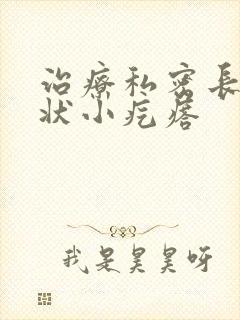 治療私密長
狀小疙瘩
我是昊昊呀